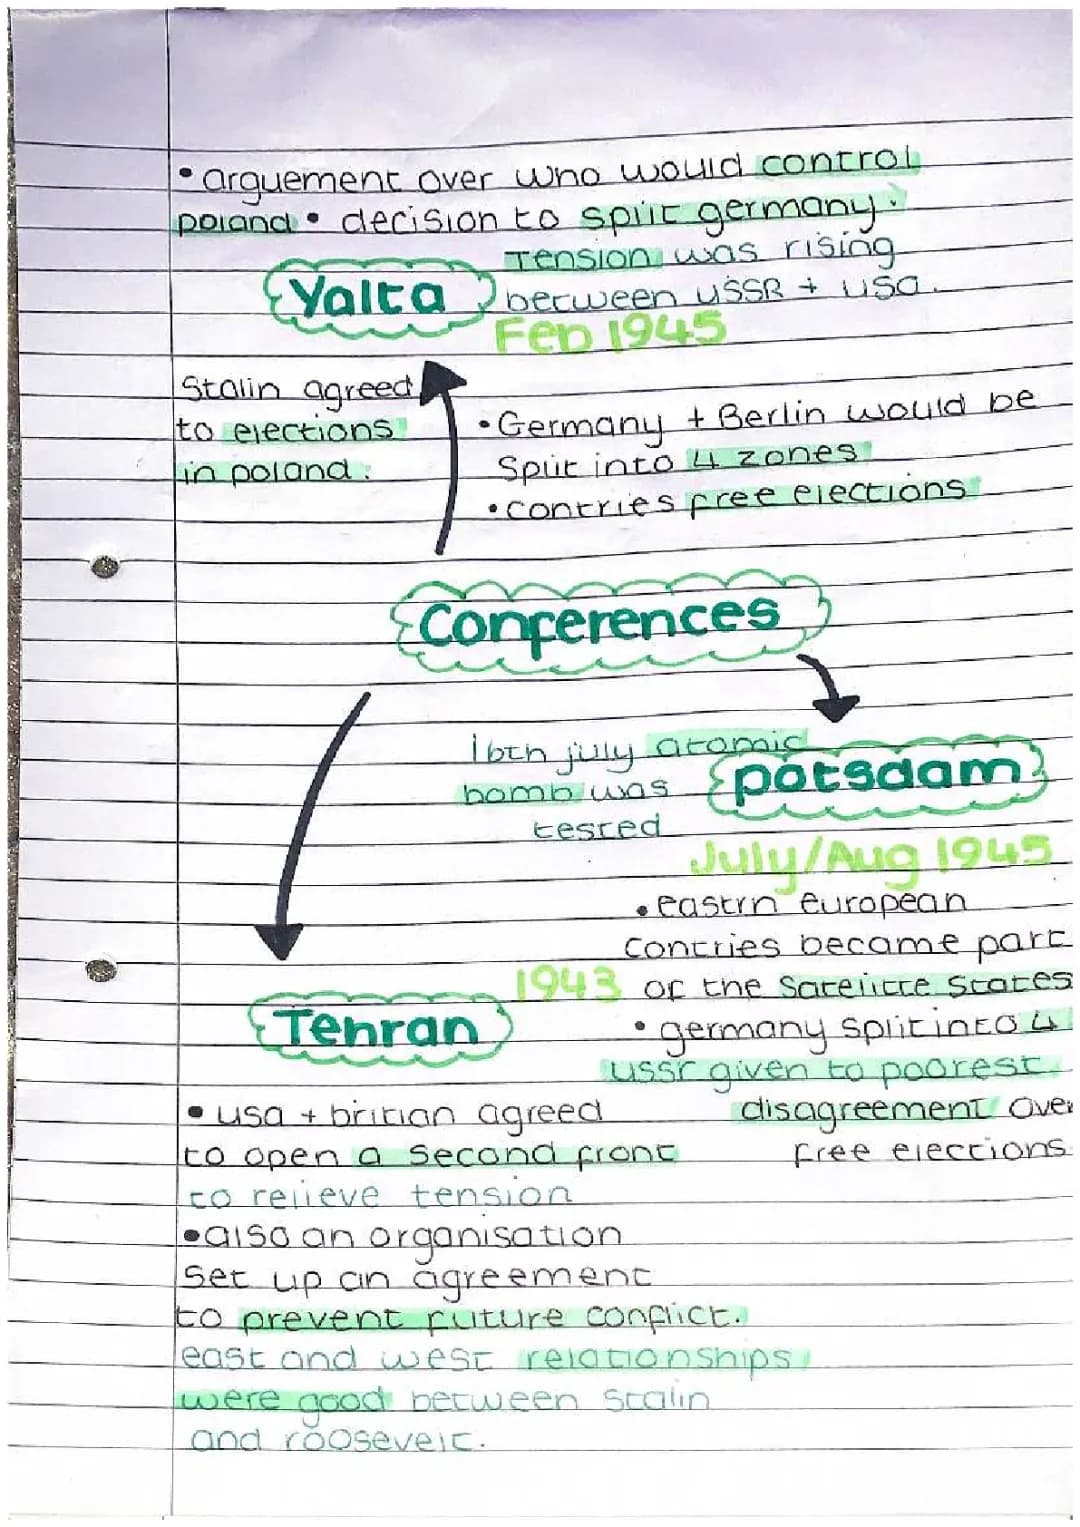 • arguement over who would control
poland • decision to split germany.
Tension was rising
between USSR + USA.
Yalta
Feb 1945
Stalin agreed
to elections
in poland.
• Germany + Berlin would be
Split into 4 zones
• contries free elections
Conferences
16th july atomic
bomb was
tested
potsdam
July/Aug 1945
• eastrn european
contries became part
of the Satelitte States
• germany split into 4
ussr given to poorest
disagreement over
free elections.
1943
Tehran
• usa + britian agreed
to open a second front
to relieve tension
• also an organisation
Set up an agreement
to prevent future conflict.
east and west relationships
were good between Stalin
and rooseveit.